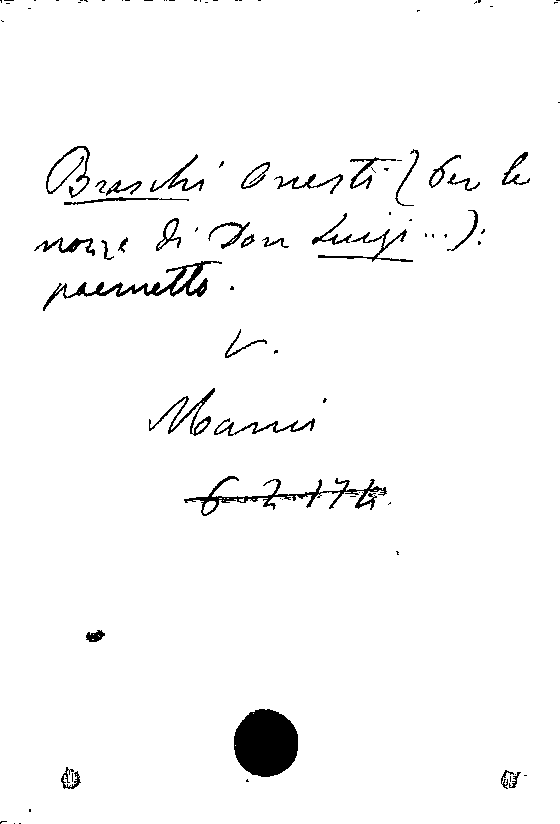 Braschi Onesti (Per le
nozze di Don Luigi ...):
poemetto.
V.
Manni
6 2 174